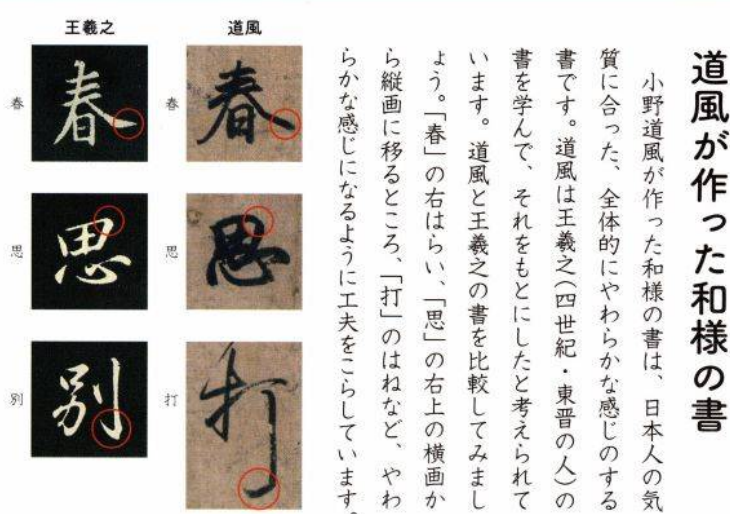 道風が作った和様の書
小野道風が作った和様の書は、日本人の気
質に合った、全体的にやわらかな感じのする
書です。道風は王羲之(四世紀・東晋の人)の
書を学んで、それをもとにしたと考えられて
います。道風と王羲之の書を比較してみまし
ょう。「春」の右はらい、「思」の右上の横画か
ら縦画に移るところ、「打」のはねなど、やわ
らかな感じになるように工夫をこらしています。
道風
春
春
思
思
打
打
王羲之
春
春
思
思
別
別